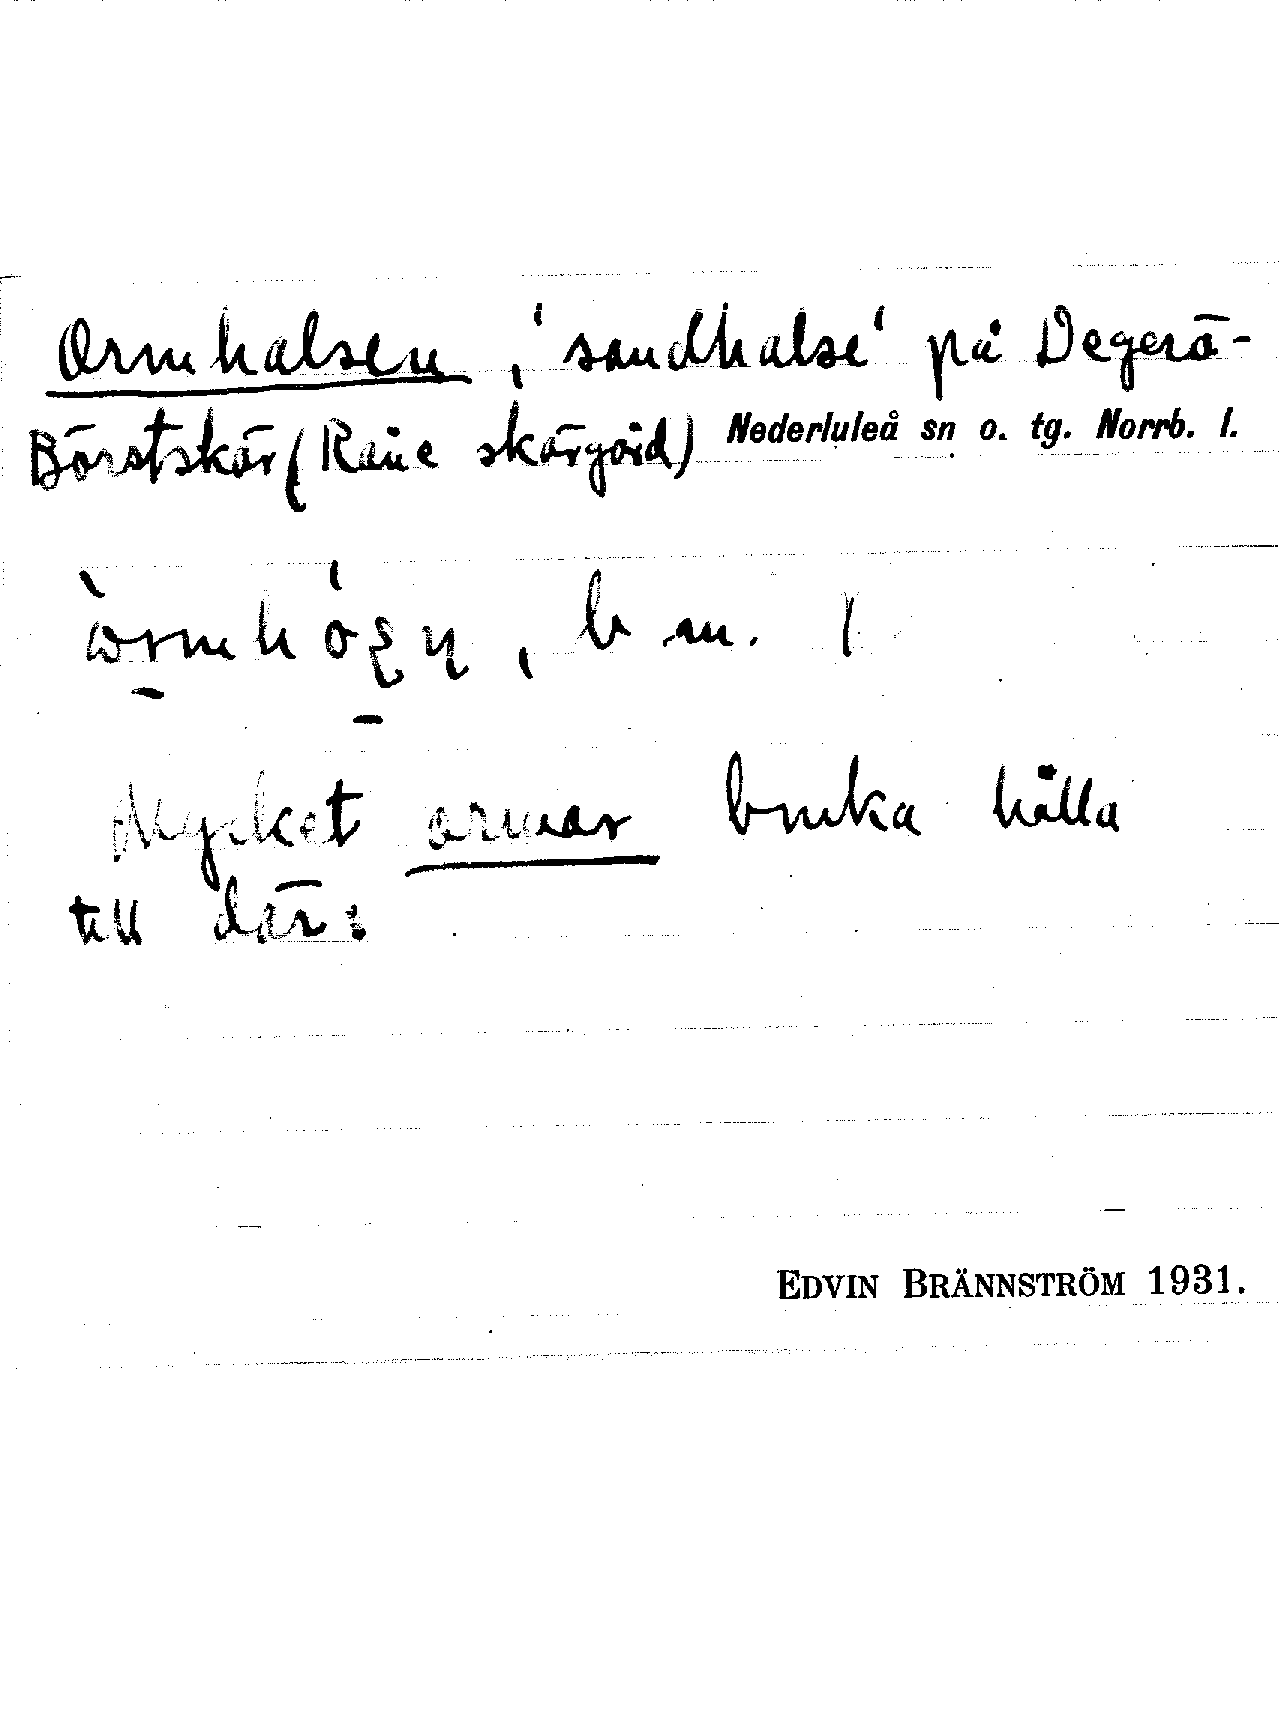 Ormhalsen, 'sandhalse' på Degerö-
Börstskär (Råne skärgård) Nederluleå sn o. tg. Norrb. l.
b m.
Mycket ormar bruka hålla
till där.
EDVIN BRÄNNSTRÖM 1931.